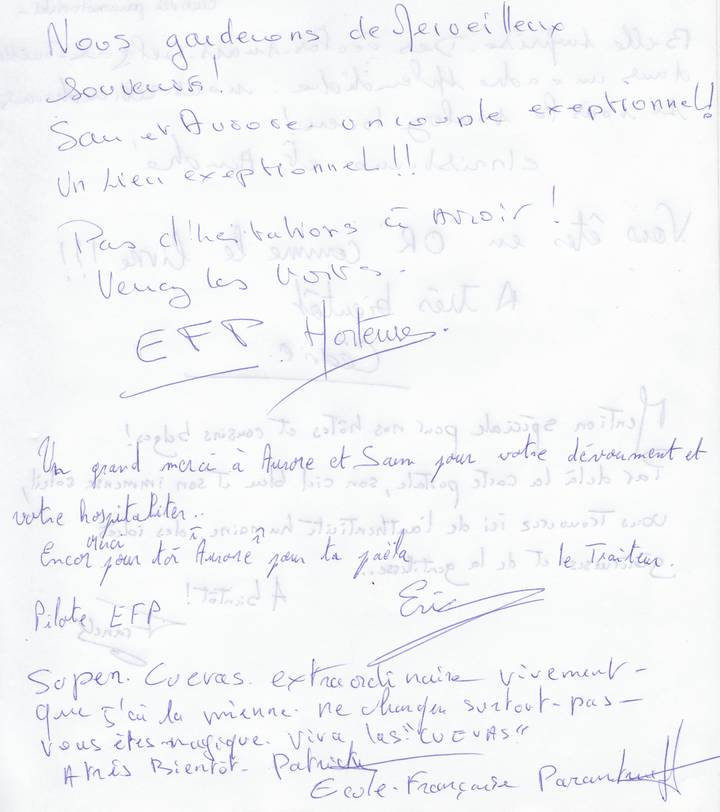 Nous garderons de Merveilleux
souvenirs!
Sam et Aurore un couple exeptionnel!
Un Lieu exeptionnel!!
Pas d'hesitations à Avoir!
Venez les Voirs.
EFP Hortense.
Un grand merci à Aurore et Sam pour votre dévoument et
votre hospitaliter..
Encor merci pour toi Aurore pour ta paëla le Traiteur.
Pilote EFP Eric
Super. Cuevas. extraordinaire vivement -
que j'ai la mienne. ne changer surtout-pas-
vous êtes-magique. Viva las "CUEVAS"
A très Bientôt- Patrick
Ecole-Française